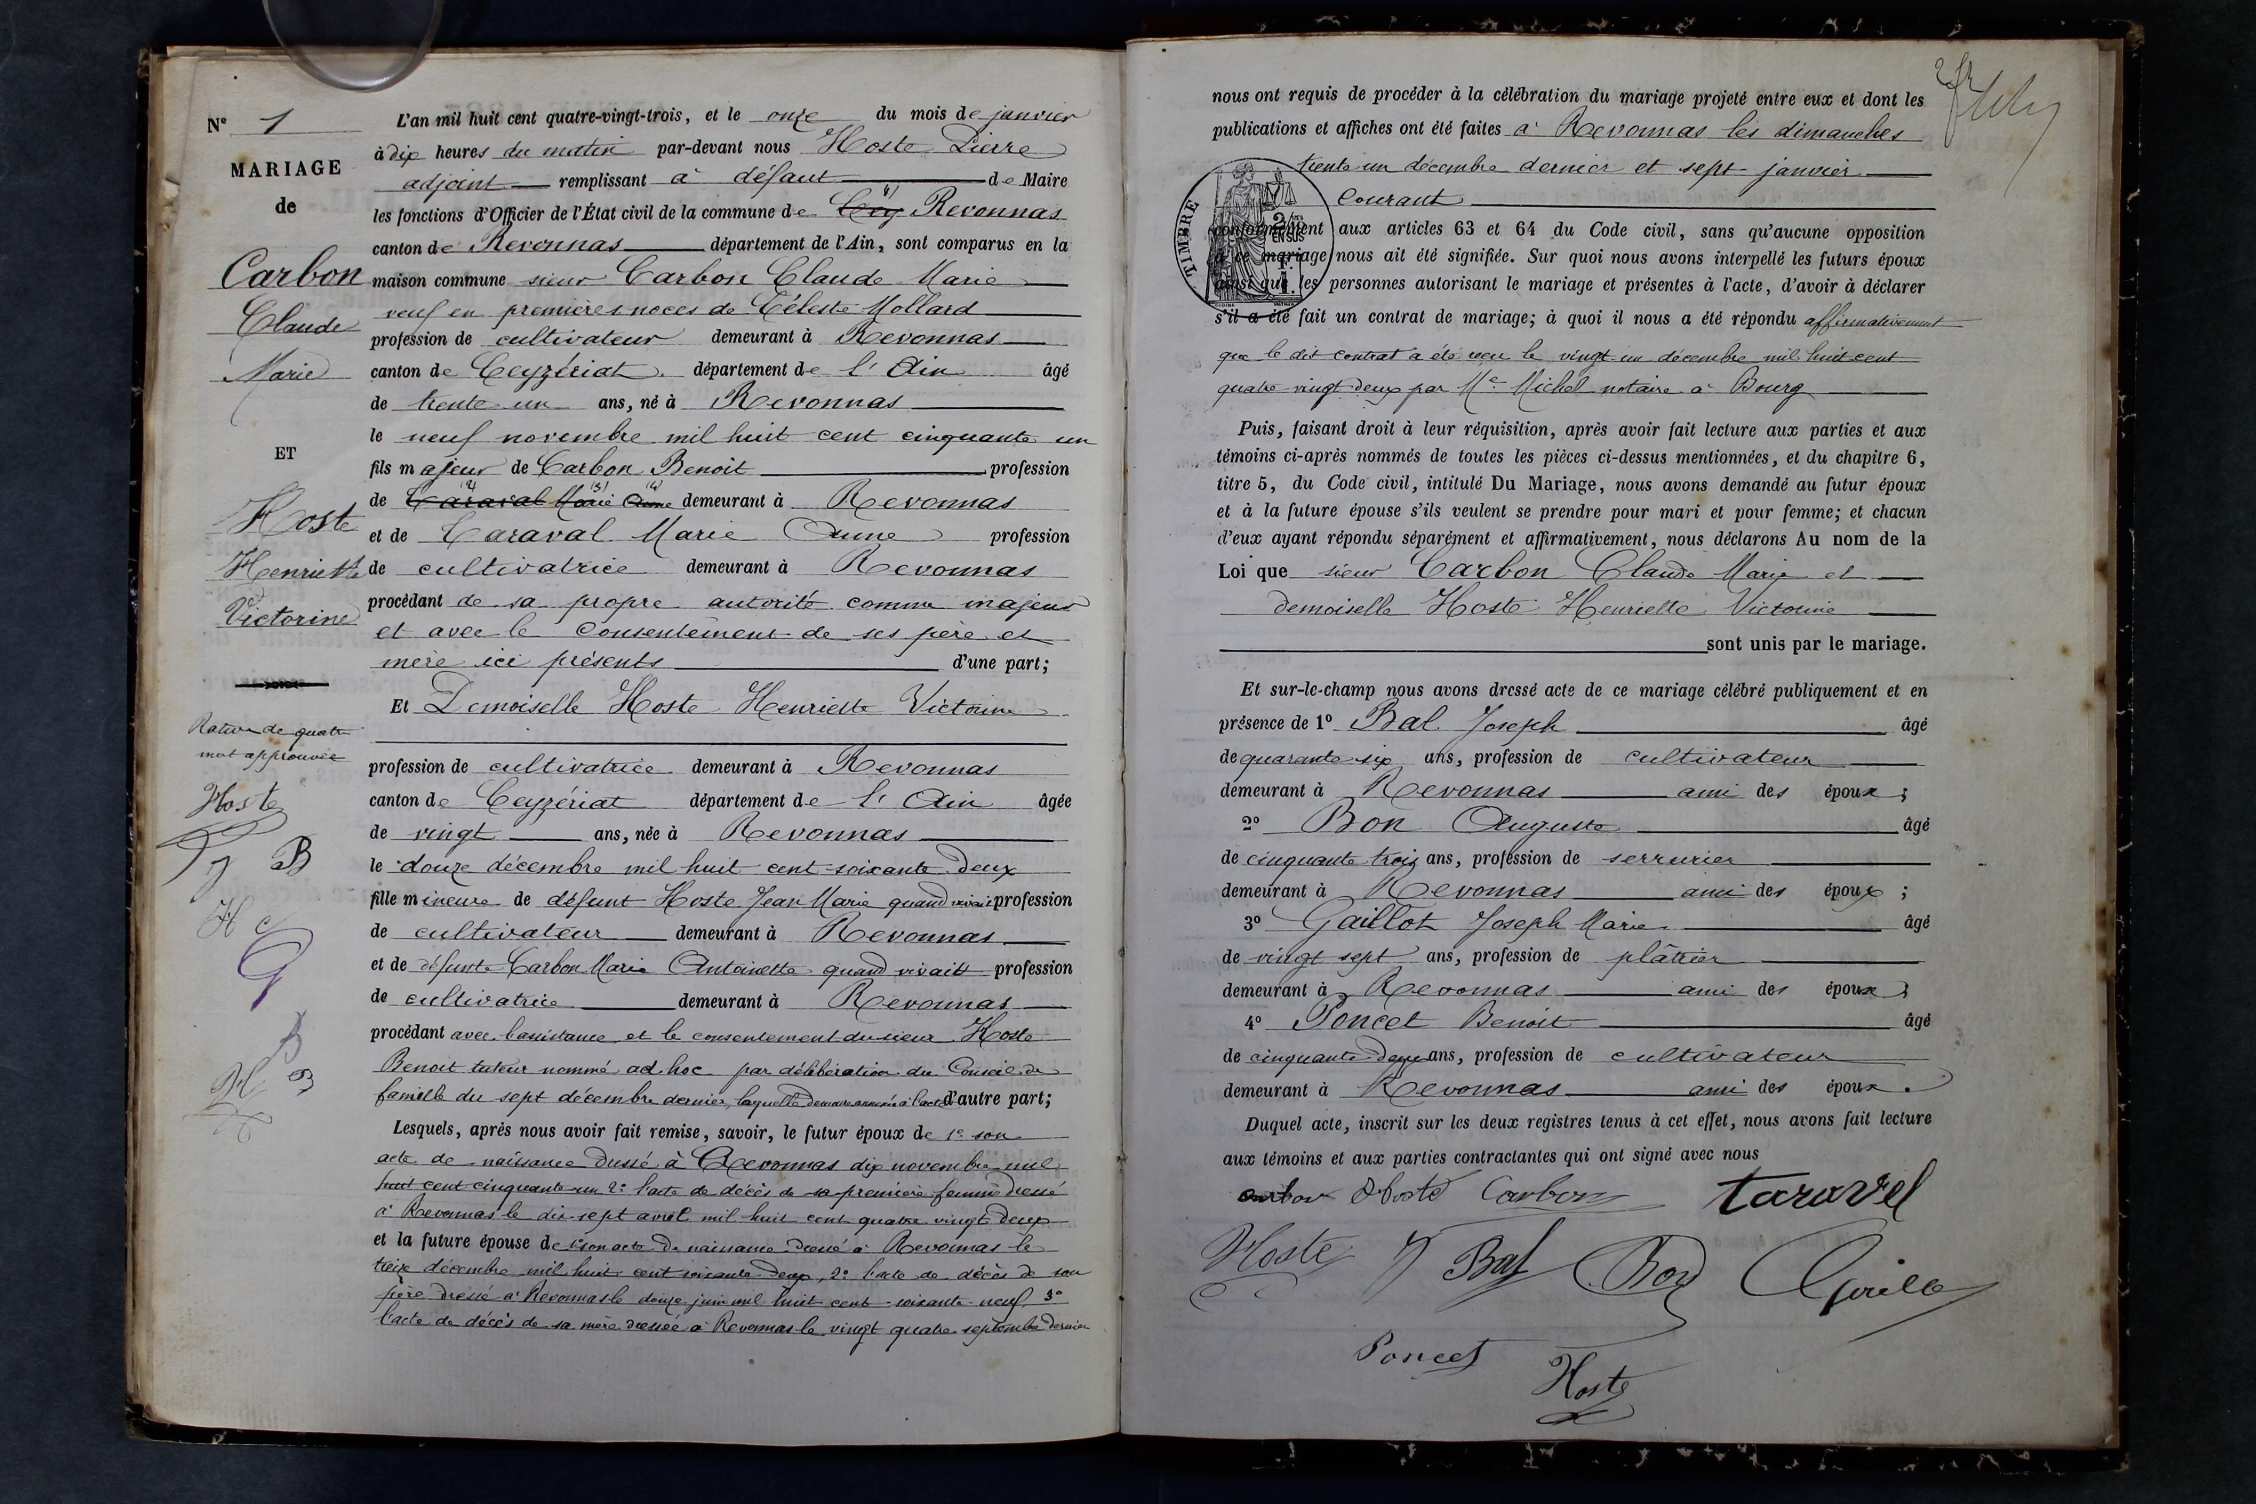 N° 1
MARIAGE
de
Carbon
Claude
Marie
ET
Hoste
Henriette
Victorine
Rature de quatre
mot approuvée
Hoste
J B
H c
G
B
H B
L'an mil huit cent quatre-vingt-trois, et le onze du mois de janvier
à dix heures du matin par-devant nous Hoste Pierre
adjoint remplissant à défaut de Maire
les fonctions d'Officier de l'État civil de la commune de Revonnas
canton de Revonnas département de l'Ain, sont comparus en la
maison commune sieur Carbon Claude Marie
veuf en premières noces de Céleste Mollard
profession de cultivateur demeurant à Revonnas
canton de Ceyzériat département de l'Ain âgé
de trente un ans, né à Revonnas
le neuf novembre mil huit cent cinquante un
fils majeur de Carbon Benoit profession
de Caraval Marie Anne demeurant à Revonnas
et de Caraval Marie Anne profession
de cultivatrice demeurant à Revonnas
procédant de sa propre autorité comme majeur
et avec le consentement de ses père et
mère ici présents d'une part;
Et Demoiselle Hoste Henriette Victorine
profession de cultivatrice demeurant à Revonnas
canton de Ceyzériat département de l'Ain âgée
de vingt ans, née à Revonnas
le douze décembre mil huit cent soixante deux
fille mineure de défunt Hoste Jean Marie quand vivait profession
de cultivateur demeurant à Revonnas
et de défunte Carbon Marie Antoinette quand vivait profession
de cultivatrice demeurant à Revonnas
procédant avec l'assistance et le consentement du sieur Hoste
Benoit tuteur nommé ad hoc par délibération du Conseil de
famille du sept décembre dernier, laquelle demeure annexée à l'acte d'autre part;
Lesquels, après nous avoir fait remise, savoir, le futur époux de 1° son
acte de naissance dressé à Revonnas dix novembre mil
huit cent cinquante un 2° l'acte de décès de sa première femme dressé
à Revonnas le dix-sept avril mil huit cent quatre vingt deux
et la future épouse de 1° son acte de naissance dressé à Revonnas le
treize décembre mil huit cent soixante deux, 2° l'acte de décès de son
père dressé à Revonnas le douze juin mil huit cent soixante neuf 3°
l'acte de décès de sa mère dressée à Revonnas le vingt quatre septembre dernier
nous ont requis de procéder à la célébration du mariage projeté entre eux et dont les
publications et affiches ont été faites à Revonnas les dimanches
trente un décembre dernier et sept janvier
courant
TIMBRE
2/10mes
EN SUS
1 F.
conformément aux articles 63 et 64 du Code civil, sans qu'aucune opposition
à ce mariage nous ait été signifiée. Sur quoi nous avons interpellé les futurs époux
ainsi que les personnes autorisant le mariage et présentes à l'acte, d'avoir à déclarer
s'il a été fait un contrat de mariage; à quoi il nous a été répondu affirmativement
que le dit contrat a été reçu le vingt un décembre mil huit cent
quatre-vingt-deux par Me Michel notaire à Bourg
Puis, faisant droit à leur réquisition, après avoir fait lecture aux parties et aux
témoins ci-après nommés de toutes les pièces ci-dessus mentionnées, et du chapitre 6,
titre 5, du Code civil, intitulé Du Mariage, nous avons demandé au futur époux
et à la future épouse s'ils veulent se prendre pour mari et pour femme; et chacun
d'eux ayant répondu séparément et affirmativement, nous déclarons Au nom de la
Loi que sieur Carbon Claude Marie et
demoiselle Hoste Henriette Victorine
sont unis par le mariage.
Et sur-le-champ nous avons dressé acte de ce mariage célébré publiquement et en
présence de 1° Bal Joseph âgé
de quarante six ans, profession de cultivateur
demeurant à Revonnas ami des époux;
2° Bon Auguste âgé
de cinquante trois ans, profession de serrurier
demeurant à Revonnas ami des époux;
3° Gaillot Joseph Marie âgé
de vingt sept ans, profession de plâtrier
demeurant à Revonnas ami des époux;
4° Poncet Benoit âgé
de cinquante deux ans, profession de cultivateur
demeurant à Revonnas ami des époux.
Duquel acte, inscrit sur les deux registres tenus à cet effet, nous avons fait lecture
aux témoins et aux parties contractantes qui ont signé avec nous
carbon Hoste Carbon taravel
Hoste J Bal Bon
Poncet
Hoste